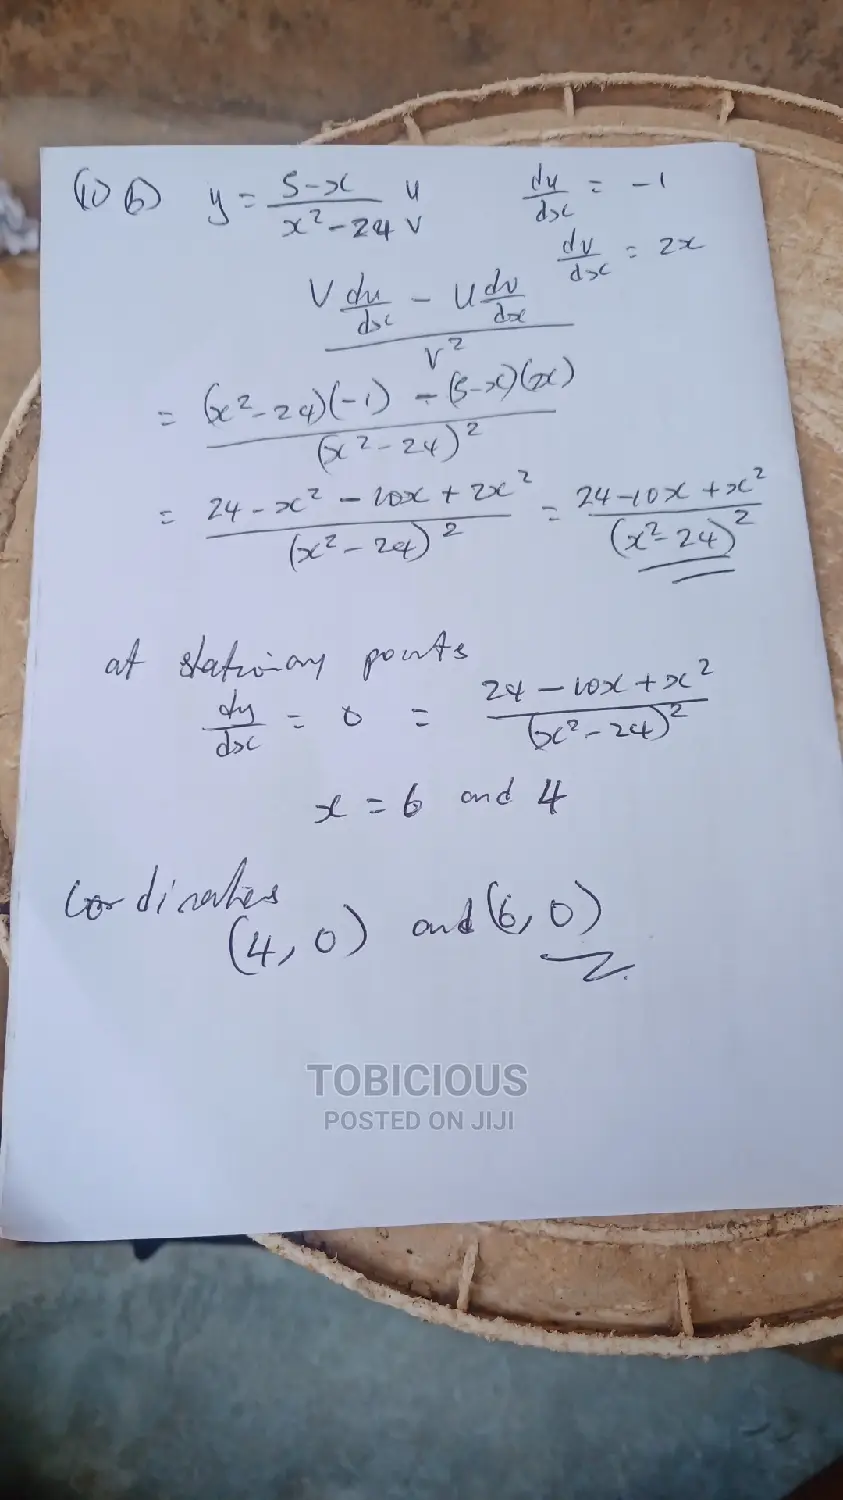 10 b) y = 5-x / x² - 24 u v du/dx = -1
dv/dx = 2x
V du/dx - U dv/dx / V²
= (x² - 24)(-1) - (5-x)(2x) / (x² - 24)²
= 24 - x² - 10x + 2x² / (x² - 24)² = 24 - 10x + x² / (x² - 24)²
at stationary points
dy/dx = 0 = 24 - 10x + x² / (x² - 24)²
x = 6 and 4
coordinates
(4, 0) and (6, 0)
TOBICIOUS
POSTED ON JIJI